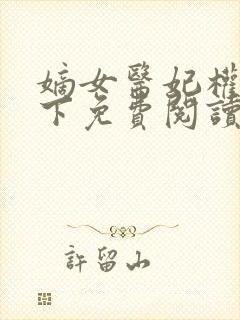 嫡女醫妃權
下免費閱讀
許留山